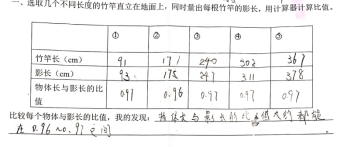 一、选取几个不同长度的竹竿直立在地面上，同时量出每根竹竿的影长，用计算器计算比值。
① ② ③ ④ ⑤
竹竿长（cm） 91 171 240 302 367
影长（cm） 93 175 247 311 378
物体长与影长的比值 0.97 0.96 0.97 0.97 0.97
比较每个物体与影长的比值，我的发现：物体长与影长的比值大约都能
在 0.96~0.97 之间